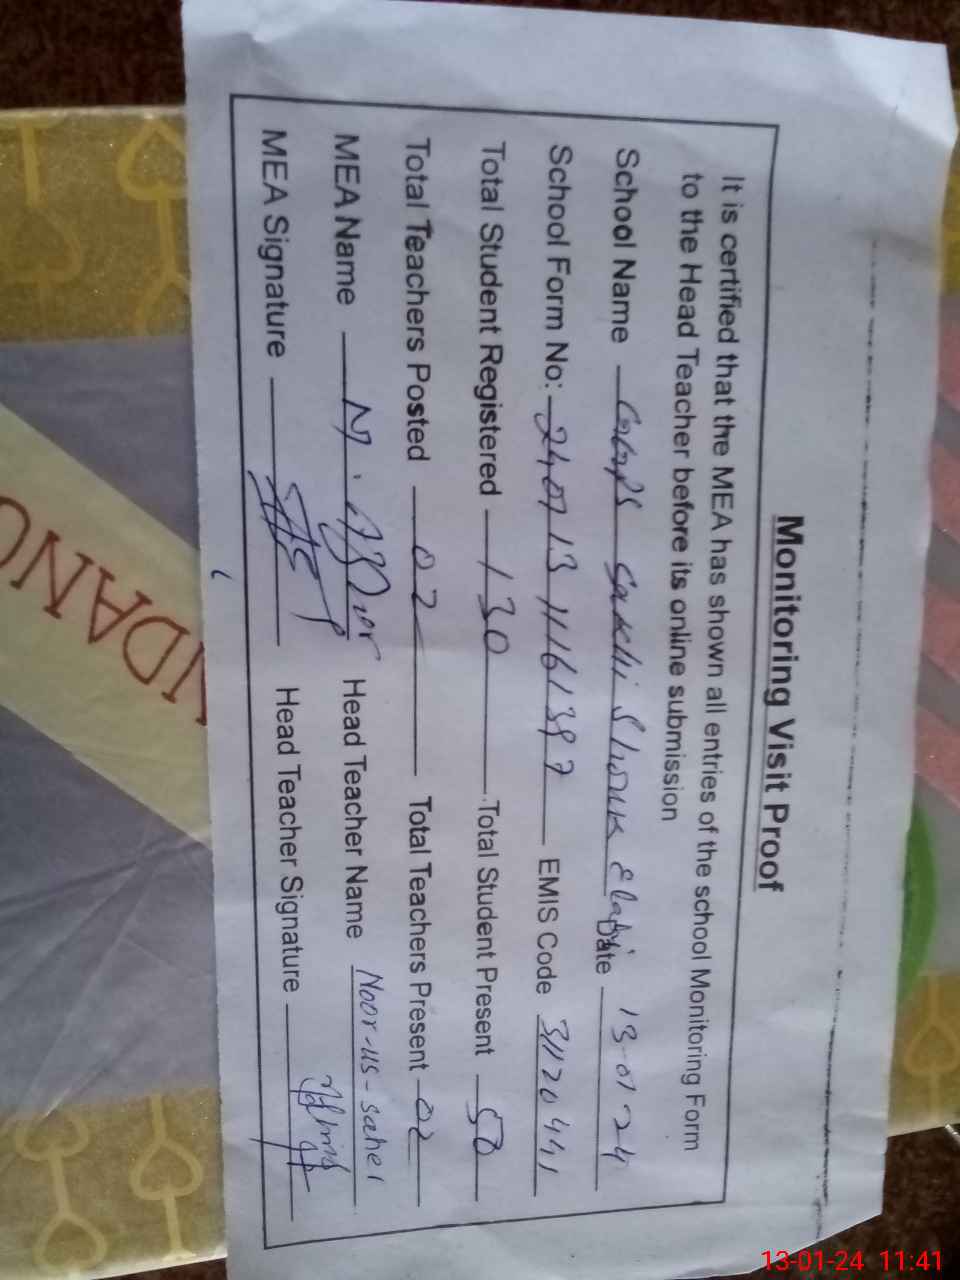 Monitoring Visit Proof
It is certified that the MEA has shown all entries of the school Monitoring Form
to the Head Teacher before its online submission
School Name GGPS Sakhi Shouk Elahi Date 13-01 24
School Form No: 240113 11161397 EMIS Code 31120441
Total Student Registered 130 Total Student Present 50
Total Teachers Posted 02 Total Teachers Present 02
MEA Name M. Head Teacher Name Noor-us-saher
MEA Signature Head Teacher Signature
NDANO
13-01-24 11:41